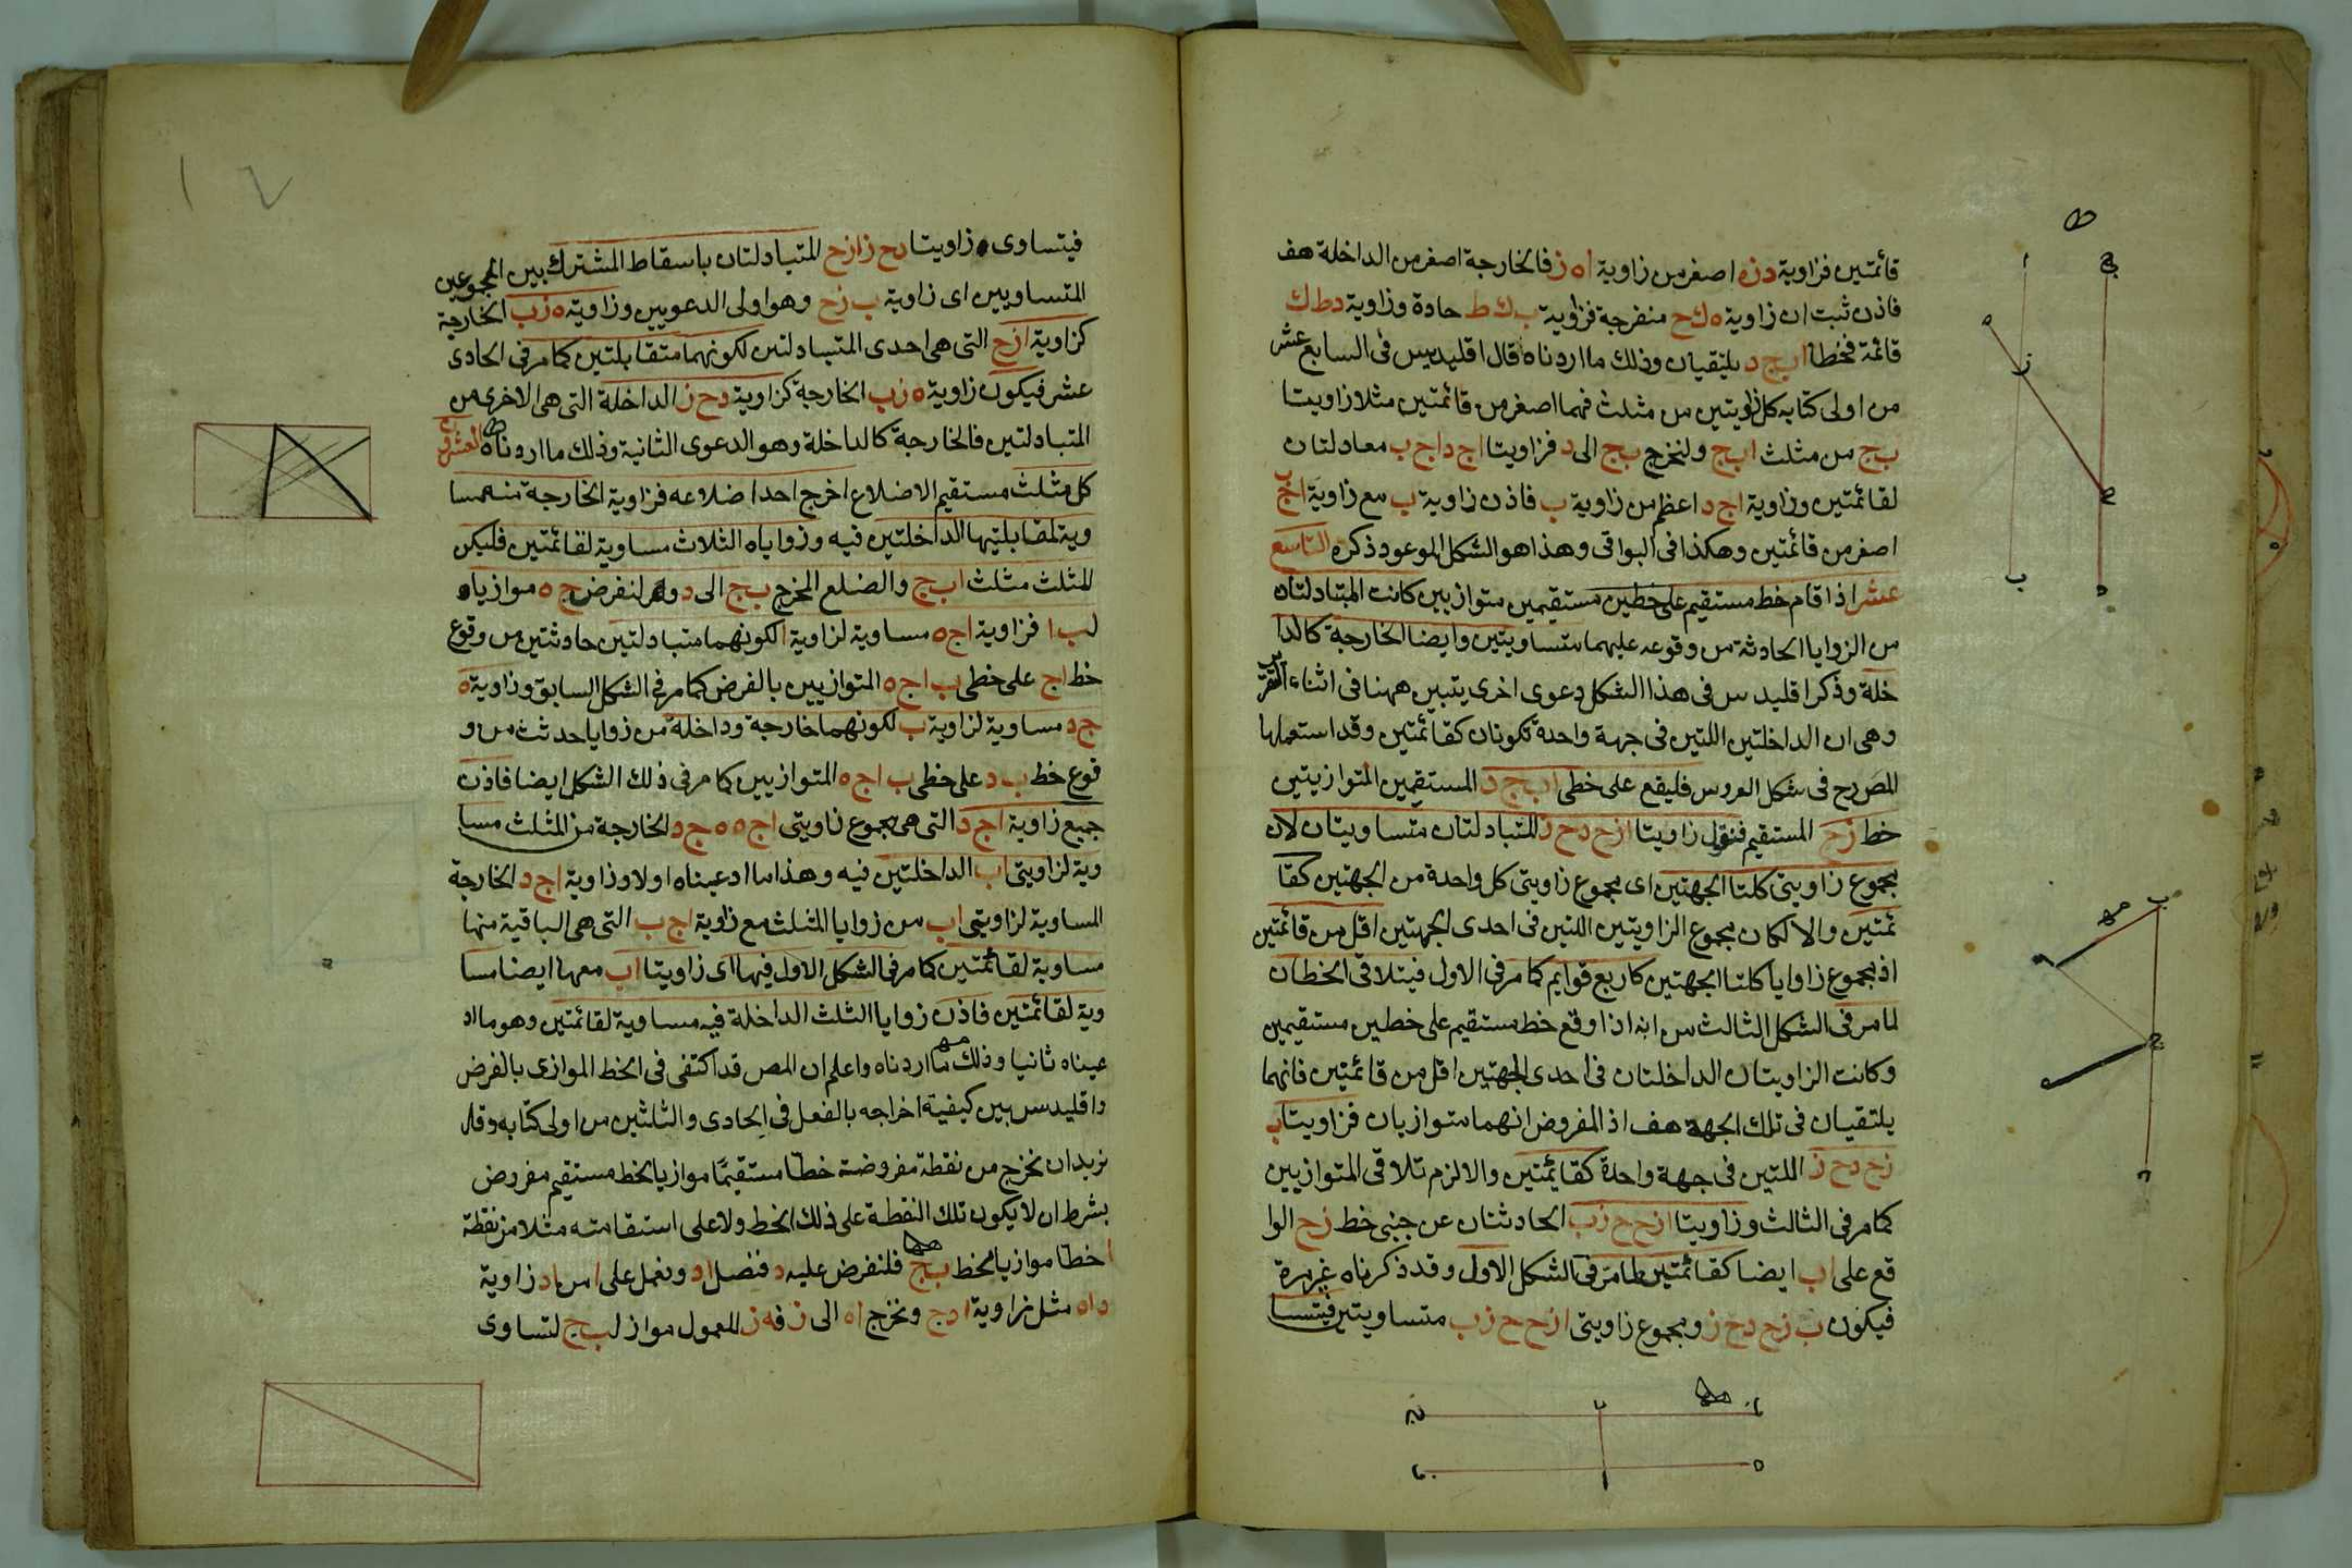 قائمتين فزاوية د ز ه اصغر من زاوية ا ه ز فالخارجة اصغر من الداخلة هف
فاذن ثبت ان زاوية ه ك ح منفرجة فزاوية ب ك ط حادة وزاوية د ط ك
قائمة فخطا ا ب ج د يلتقيان وذلك ما اردناه قال اقليدس فى السابع عشر
من اولى كتابه كل زاويتين من مثلث فهما اصغر من قائمتين مثلا زاويتا
ب ج من مثلث ا ب ج ولنخرج ب ج الى د فزاويتا ا ج د ا ج ب معادلتان
لقائمتين وزاوية ا ج د اعظم من زاوية ب فاذن زاوية ب مع زاوية ا ج ب
اصغر من قائمتين وهكذا فى البواقى وهذا هو الشكل الموعود ذكره التاسع
عشر اذا قام خط مستقيم على خطين مستقيمين متوازيين كانت المتبادلتان
من الزوايا الحادثة من وقوعه عليهما متساويتين وايضا الخارجة كالدا
خلة وذكر اقليدس فى هذا الشكل دعوى اخرى يتبين ههنا فى اثناء التقرير
وهى ان الداخلتين اللتين فى جهة واحدة تكونان كقائمتين وقد استعملها
المص رح فى شكل العروس فليقع على خطى ا ب ج د المستقيمين المتوازيتين
خط ز ح المستقيم فنقول زاويتا ا ز ح د ح ز المتبادلتان متساويتان لان
مجموع زاويتى كلتا الجهتين اى مجموع زاويتى كل واحدة من الجهتين كقا
ئمتين والا لكان مجموع الزاويتين اللتين فى احدى الجهتين اقل من قائمتين
اذ مجموع زاوايا كلتا الجهتين كاربع قوايم كما مر فى الاول فيتلاقى الخطان
لما مر فى الشكل الثالث من انه اذا وقع خط مستقيم على خطين مستقيمين
وكانت الزاويتان الداخلتان فى احدى الجهتين اقل من قائمتين فانهما
يلتقيان فى تلك الجهة هف اذ المفروض انهما متوازيان فزاويتا ب
ز ح د ح ز اللتين فى جهة واحدة كقايمتين والا لزم تلاقى المتوازيين
كما مر فى الثالث وزاويتا ا ز ح ح ز ب الحادثتان عن جنبى خط ز ح الوا
قع على ا ب ايضا كقائمتين لما مر فى الشكل الاول وقد ذكرناه غير مرة
فيكون ب ز ح د ح ز ومجموع زاويتى ا ز ح ح ز ب متساويتين فيتسا
فيتساوى زاويتا د ح ز ا ز ح المتبادلتان باسقاط المشترك بين المجموعين
المتساويين اى زاوية ب ز ح وهو اولى الدعويين وزاوية ه ز ب الخارجة
كزاوية ا ز ح التى هى احدى المتبادلتين لكونهما متقابلتين كما مر فى الحادى
عشر فيكون زاوية ه ز ب الخارجة كزاوية د ح ز الداخلة التى هى الاخرى من
المتبادلتين فالخارجة كالداخلة وهو الدعوى الثانية وذلك ما اردناه العشرون
كل مثلث مستقيم الاضلاع اخرج احد اضلاعه فزاوية الخارجة منه مسا
وية لمقابلتيها الداخلتين فيه وزواياه الثلاث مساوية لقائمتين فليكن
المثلث مثلث ا ب ج والضلع المخرج ب ج الى د ولنفرض ج ه موازيا
لب ا فزاوية ا ج ه مساوية لزاوية ا لكونهما متبادلتين حادثتين من وقوع
خط ا ج على خطى ب ا ج ه المتوازيين بالفرض كما مر فى الشكل السابق وزاوية ه
ج د مساوية لزاوية ب لكونهما خارجة وداخلة من زوايا حدثت من و
قوع خط ب د على خطى ب ا ج ه المتوازيين كما مر فى ذلك الشكل ايضا فاذن
جميع زاوية ا ج د التى هى مجموع زاويتى ا ج ه ه ج د الخارجة من المثلث مسا
وية لزاويتى ا ب الداخلتين فيه وهذا ما ادعيناه اولا وزاوية ا ج د الخارجة
المساوية لزاويتى ا ب من زوايا المثلث مع زاوية ا ج ب التى هى الباقية منها
مساوية لقائمتين كما مر فى الشكل الاول فيها اى زاويتا ا ب معها ايضا مسا
وية لقائمتين فاذن زوايا الثلث الداخلة فيه مساوية لقائمتين وهو ما اد
عيناه ثانيا وذلك ما اردناه واعلم ان المص قد اكتفى فى الخط الموازى بالفرض
واقليدس بين كيفية اخراجه بالفعل فى الحادى والثلثين من اولى كتابه وقال
نريد ان نخرج من نقطة مفروضة خطا مستقيما موازيا لخط مستقيم مفروض
بشرط ان لا يكون تلك النقطة على ذلك الخط ولا على استقامته مثلا من نقطة
ا خطا موازيا لخط ب ج فلنفرض عليه د فنصل ا د ونعمل على ا من ا د زاوية
د ا ه مثل زاوية ا د ج ونخرج ا ه الى ز ف ه ز المعمول مواز لب ج لتساوى